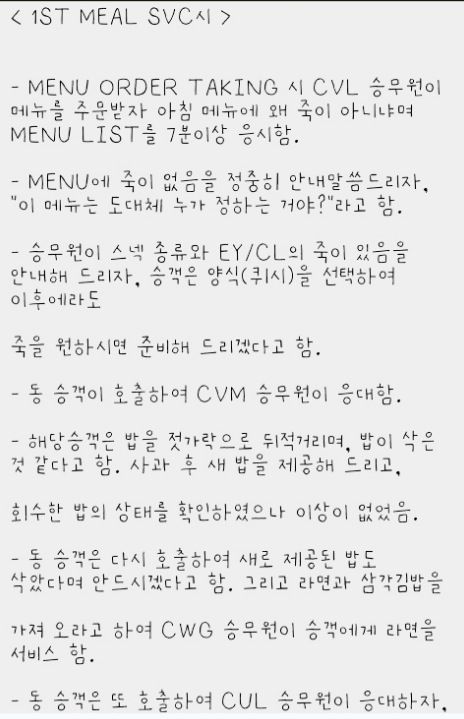 < 1ST MEAL SVC시 >
- MENU ORDER TAKING 시 CVL 승무원이
메뉴를 주문받자 아침 메뉴에 왜 죽이 아니냐며
MENU LIST를 7분이상 응시함.
- MENU에 죽이 없음을 정중히 안내말씀드리자,
"이 메뉴는 도대체 누가 정하는 거야?"라고 함.
- 승무원이 스넥 종류와 EY/CL의 죽이 있음을
안내해 드리자, 승객은 양식(퀴시)을 선택하여
이후에라도
죽을 원하시면 준비해 드리겠다고 함.
- 동 승객이 호출하여 CVM 승무원이 응대함.
- 해당승객은 밥을 젓가락으로 뒤적거리며, 밥이 삭은
것 같다고 함. 사과 후 새 밥을 제공해 드리고,
회수한 밥의 상태를 확인하였으나 이상이 없었음.
- 동 승객은 다시 호출하여 새로 제공된 밥도
삭았다며 안드시겠다고 함. 그리고 라면과 삼각김밥을
가져 오라고 하여 CWG 승무원이 승객에게 라면을
서비스 함.
- 동 승객은 또 호출하여 CUL 승무원이 응대하자,